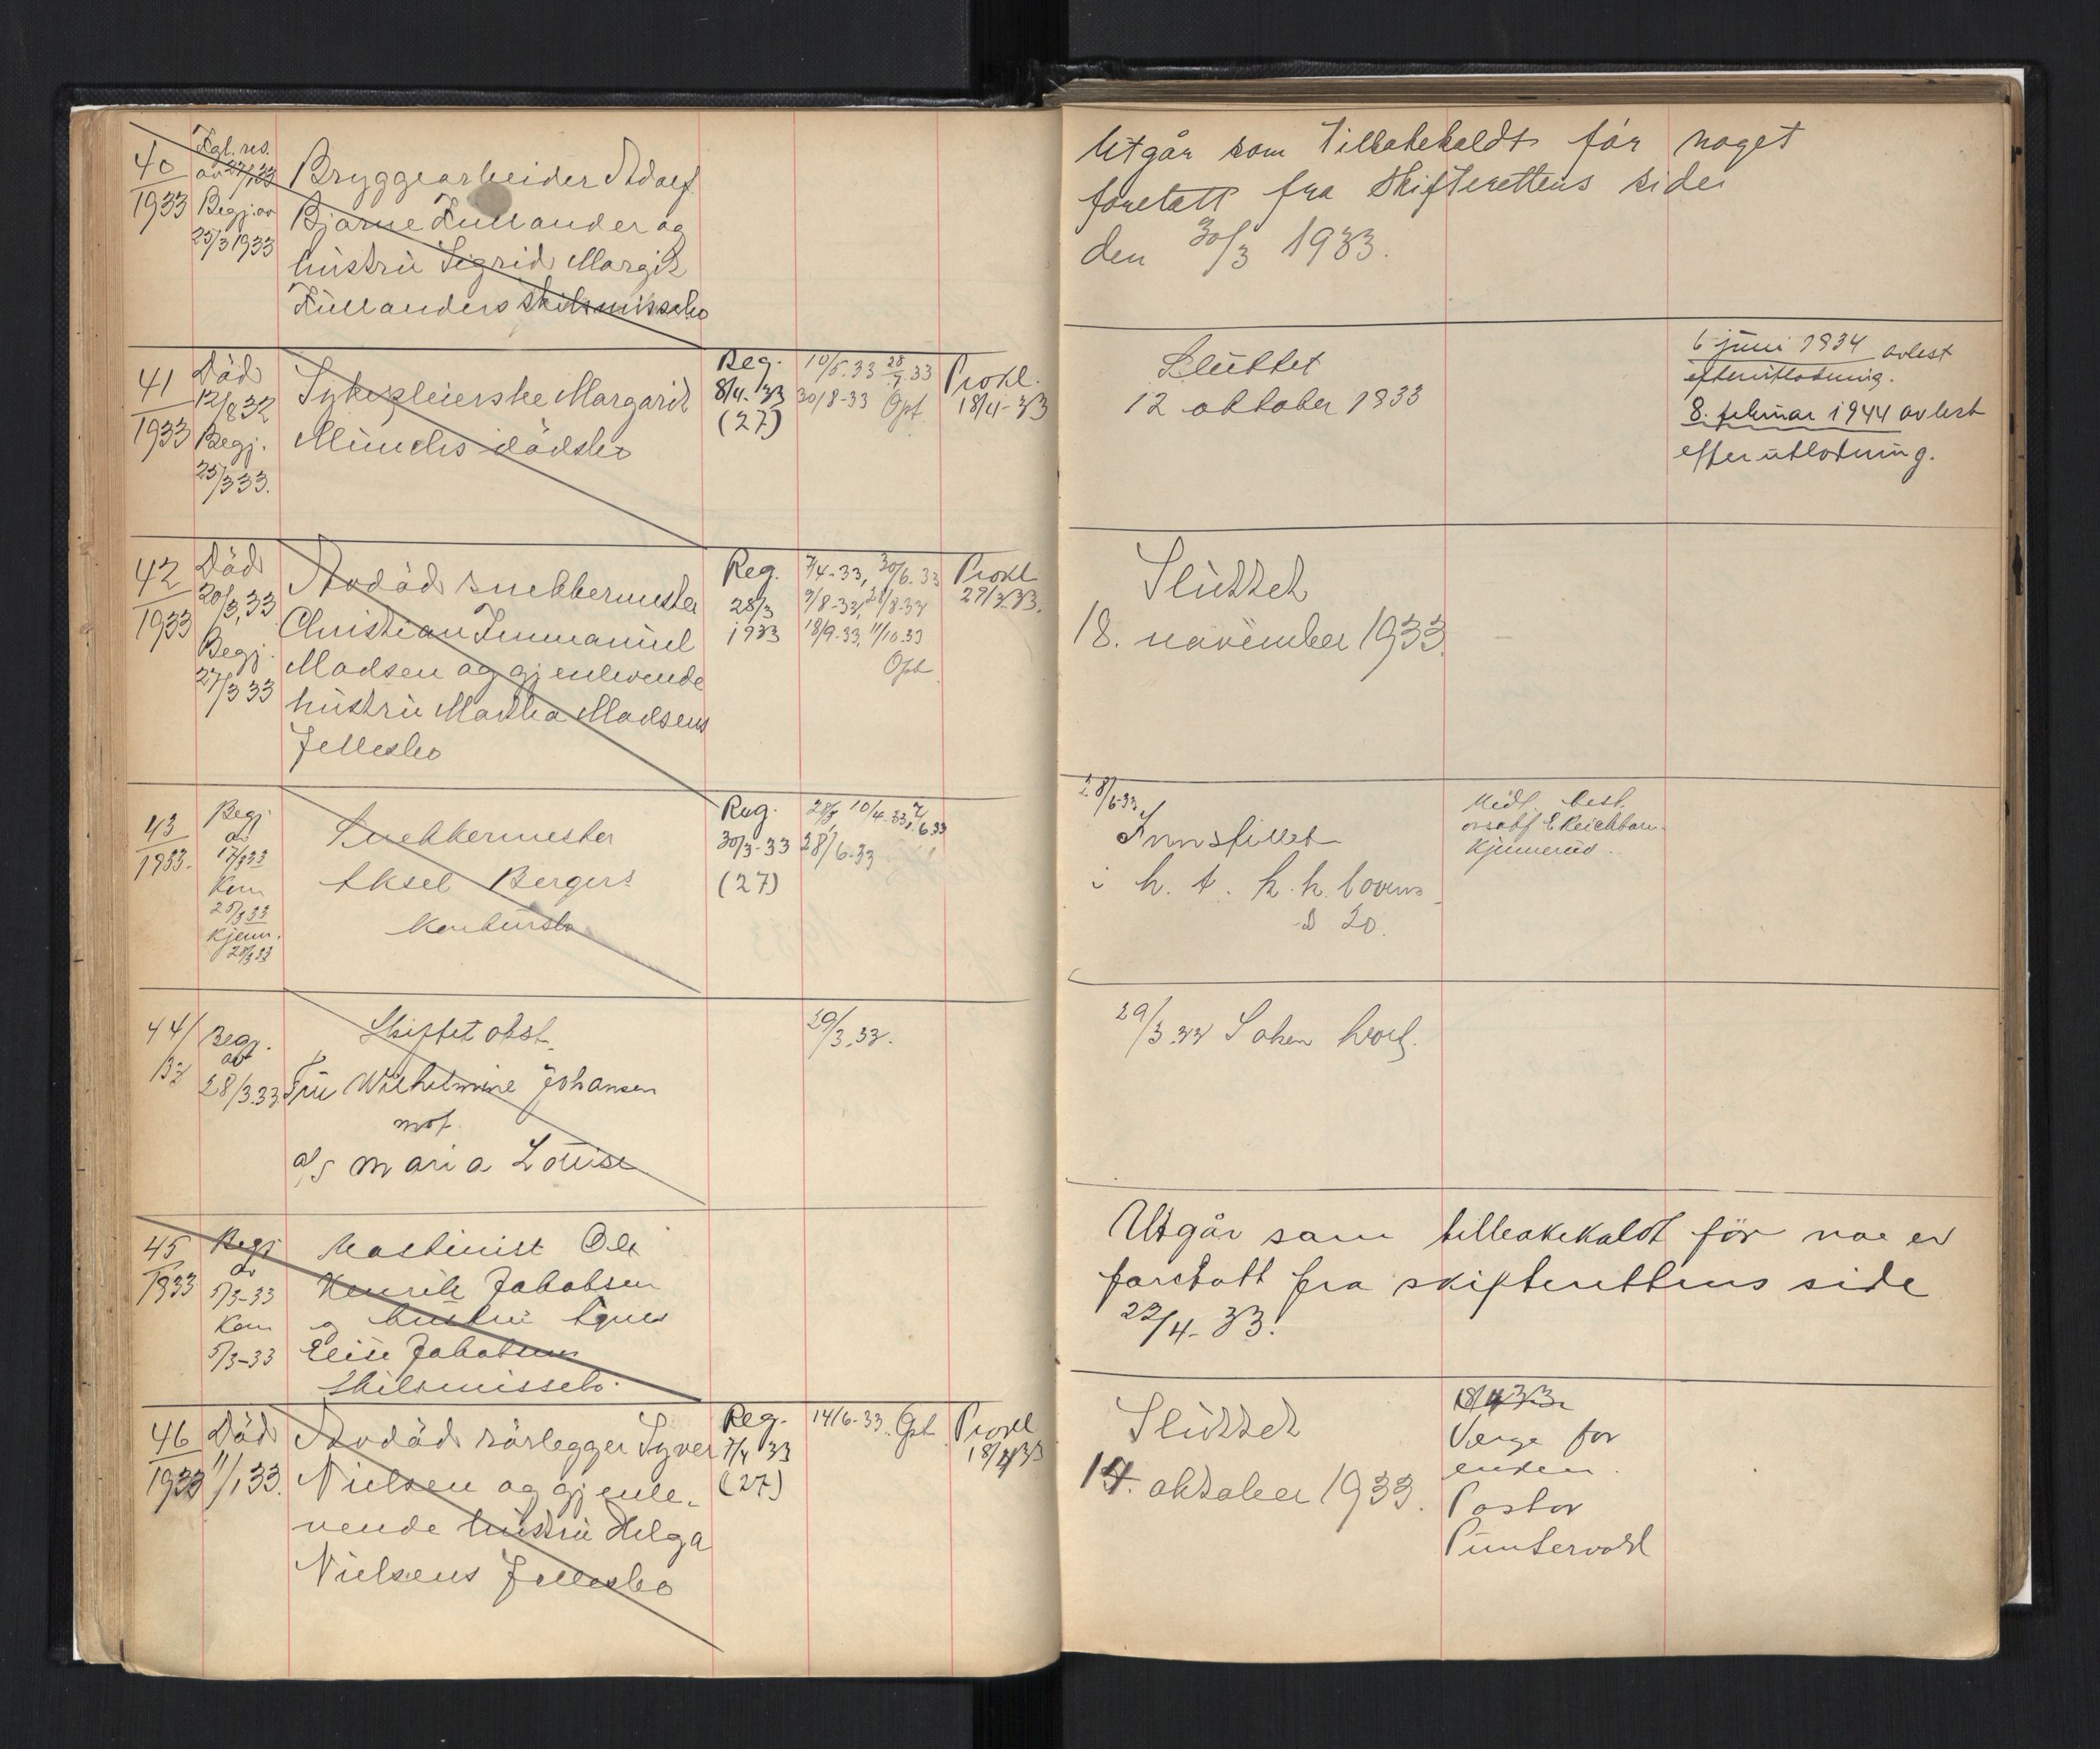 40
1933
Kgl. res.
av 27/1 33
Begj. av
25/3 1933
Bryggearbeider Adolf
Bjarne Kullander og
hustru Sigrid Margit
Kullanders skilsmissebo
Utgår som tilbakekaldt før noget
foretatt fra Skifterettens side
den 30/3 1933.
41
1933
Död
12/8 32
Begj.
25/3 33.
Sykepleierske Margarit
Münchs dödsbo
Reg.
8/4. 33
(27)
10/5.33 28/7.33
30/8-33 Opt.
Prokl.
18/4-33
Sluttet
12 oktober 1933
6 juni 1934 avlest
efterutlodning.
8. februar 1944 avlest
efterutlodning.
42
1933
Död
20/3.33
Begj.
27/3 33
Avdöd snekkermester
Christian Immanuel
Madsen og gjenlevende
hustru Martha Madsens
fellesbo
Reg.
28/3
1933
7/4-33, 30/6.33
9/8-33, 21/8-33
18/9.33, 11/10.33
Opt
Prokl
29/3.33.
Sluttet
18. november 1933.
43
1933.
Begj.
av
17/3 33
Kom
25/3 33
Kjenn.
28/3 33
Snekkermester
Aksel Bergers
konkursbo
Reg.
30/3-33
(27)
10/4.33
28/6-33
28/6-33
Innstillet
i h. t. k. k. lovens
§ 20.
Midl. best.
Kjennerud.
44/
33
Begj.
av
28/3.33.
Skiftet obst.
Fru Wilhelmine Johansen
mot
a/s Maria Louise
29/3.33.
29/3.33 Saken hevet.
45
1933
Begj
av
5/3-33
Kom
5/3-33
Maskinist Ole
Henrik Jakobsen
og hustru Agnes
Elise Jakobsens
skilsmissebo.
Utgår som tilbakekaldt før noe er
foretatt fra skifterettens side
22/4-33.
46
1933
Död
11/1 33.
Avdöd rörlegger Syver
Nielsen og gjenle-
vende hustru Helga
Nielsens fellesbo
Reg.
7/4 33
(27)
14/6-33. Opt
Prokl
18/4 33
Sluttet
14. oktober 1933.
18/4 33
Verge for
enken.
Pastor
Puntervold